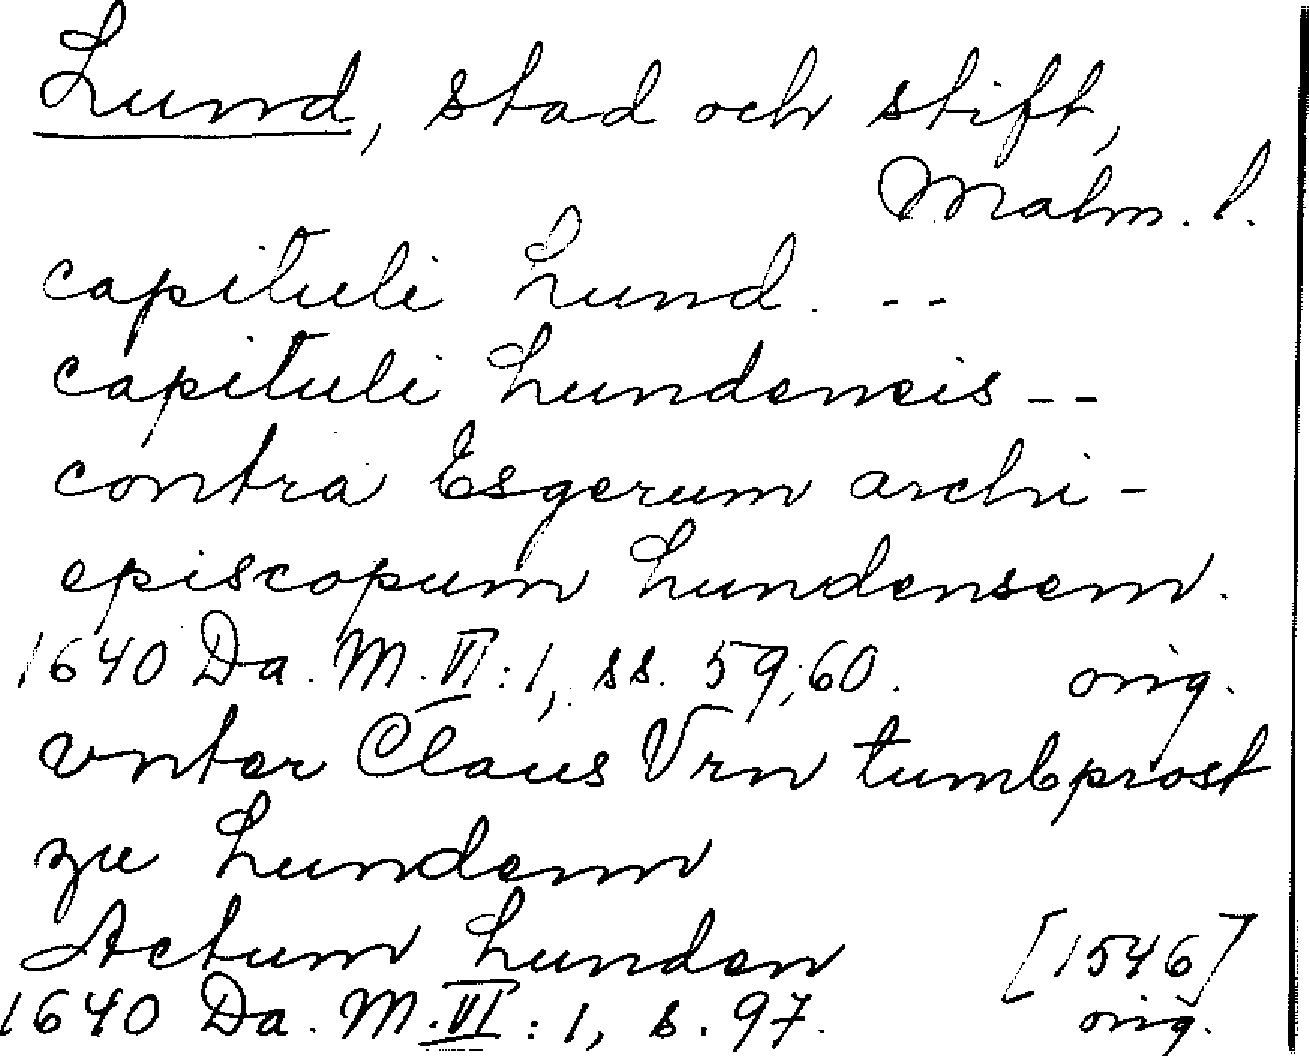 Lund, stad och stift,
Malm. l.
capituli Lund. --
capituli Lundencis --
contra Esgerum archi-
episcopum Lundensem.
1640 Da. M. VI: 1, ss. 59, 60. orig.
vnter Claus Vrn tumbprost
zu Lundenn
Actum Lunden [1546]
1640 Da. M. VI: 1, s. 97. orig.